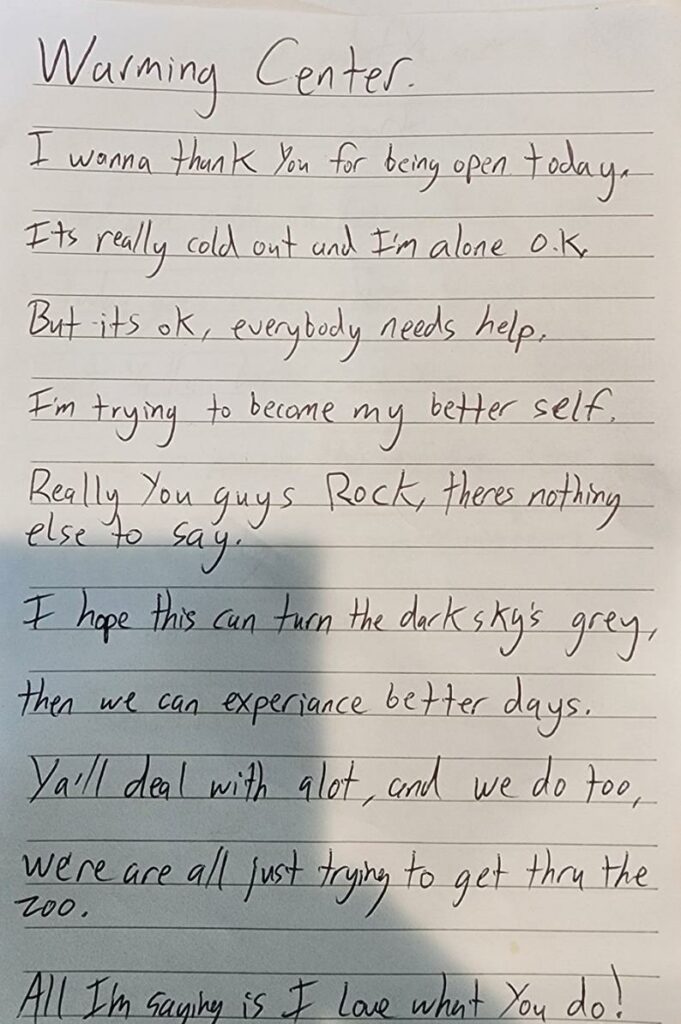 Warming Center.
I wanna thank You for being open today.
Its really cold out and I'm alone O.K.
But its ok, everybody needs help.
I'm trying to become my better self.
Really You guys Rock, theres nothing
else to say.
I hope this can turn the dark sky's grey,
then we can experiance better days.
Ya'll deal with alot, and we do too,
we're are all just trying to get thru the
zoo.
All I'm saying is I Love what You do!